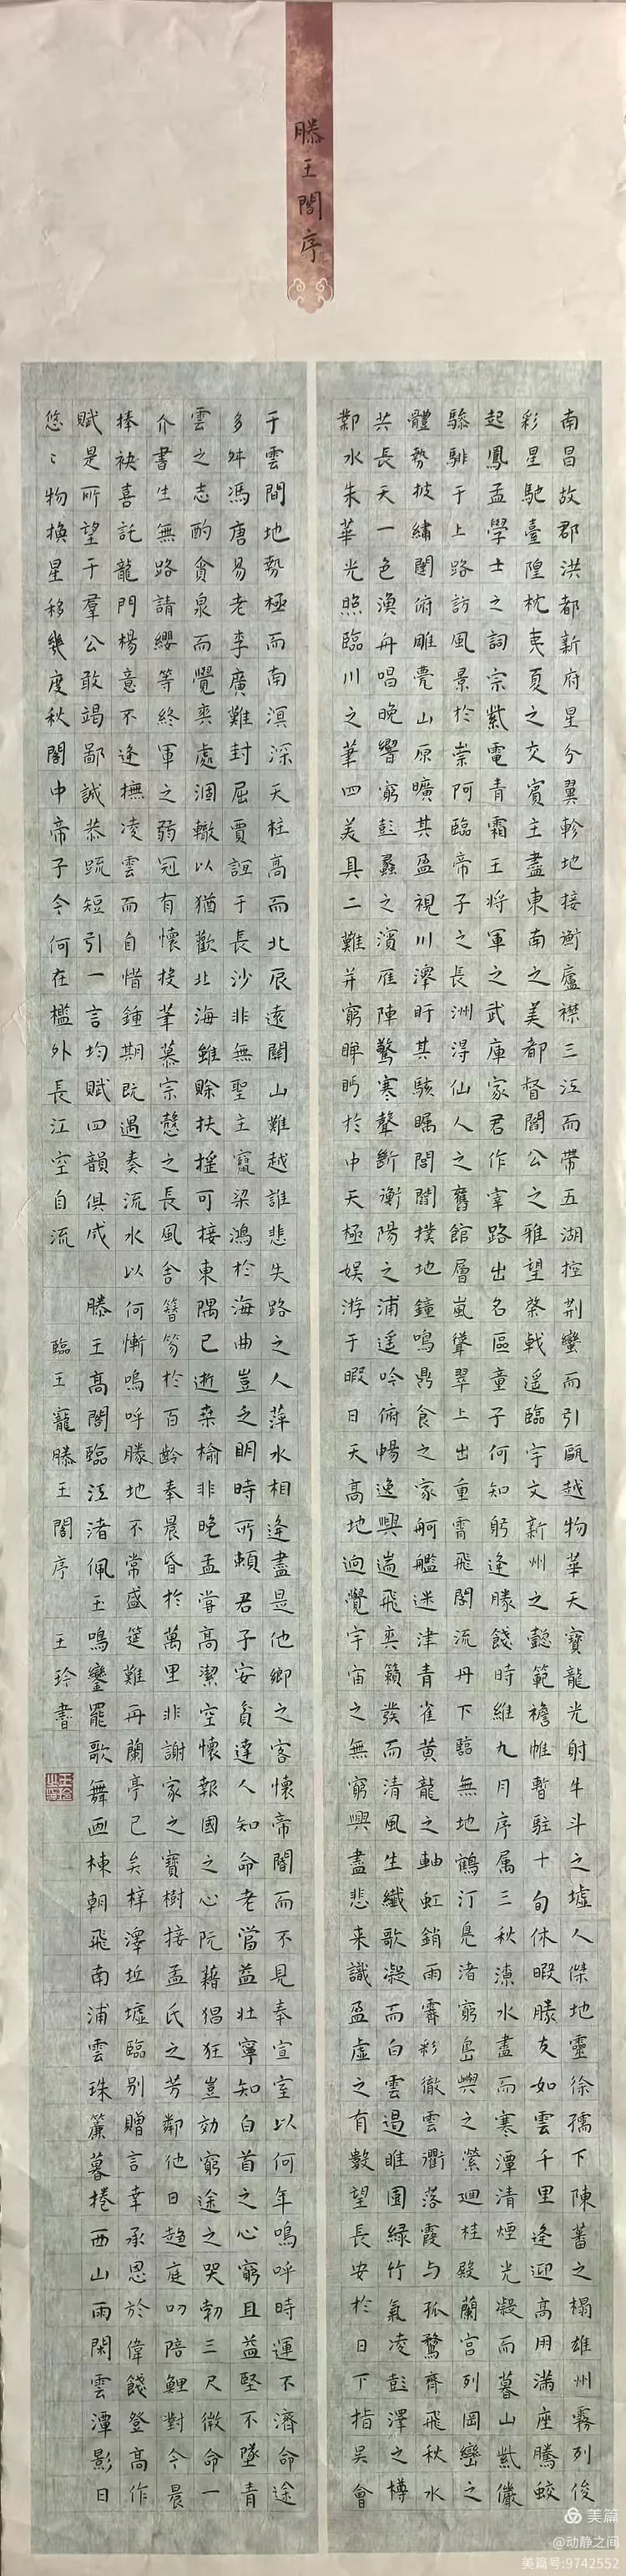 滕王閣序
南昌故郡洪都新府星分翼軫地接衡廬襟三江而帶五湖控荆蠻而引甌越物華天寶龍光射牛斗之墟人傑地靈徐孺下陳蕃之榻雄州霧列俊
彩星馳臺隍枕夷夏之交賓主盡東南之美都督閻公之雅望棨戟遥臨宇文新州之懿範襜帷暫駐十旬休暇勝友如雲千里逢迎高朋滿座騰蛟
起鳳孟學士之詞宗紫電青霜王將軍之武庫家君作宰路出名區童子何知躬逢勝餞時維九月序属三秋潦水盡而寒潭清煙光凝而暮山紫儼
驂騑于上路訪風景於崇阿臨帝子之長洲得仙人之舊館層嵐聳翠上出重霄飛閣流丹下臨無地鶴汀鳧渚窮島嶼之縈廻桂殿蘭宮列岡巒之
體勢披繡闥俯雕甍山原曠其盈視川澤盱其駭矚閭閻撲地鐘鳴鼎食之家舸艦迷津青雀黄龍之軸虹銷雨霽彩徹雲衢落霞与孤鶩齊飛秋水
共長天一色漁舟唱晚響窮彭蠡之濱雁陣驚寒聲斷衡陽之浦遥吟俯暢逸興遄飛爽籟發而清風生纖歌凝而白雲遏睢園緑竹氣凌彭澤之樽
鄴水朱華光照臨川之筆四美具二難并窮睇眄於中天極娱游于暇日天高地迥覺宇宙之無窮興盡悲来識盈虚之有數望長安於日下指吴會
于雲間地勢極而南溟深天柱高而北辰遠關山難越誰悲失路之人萍水相逢盡是他鄉之客懷帝閽而不見奉宣室以何年嗚呼時運不濟命途
多舛馮唐易老李廣難封屈賈誼于長沙非無聖主竄梁鴻於海曲豈乏明時所賴君子安貧達人知命老當益壯寧知白首之心窮且益堅不墜青
雲之志酌貪泉而覺爽處涸轍以猶歡北海雖賒扶摇可接東隅已逝桑榆非晚孟嘗高潔空懷報國之心阮藉猖狂豈効窮途之哭勃三尺微命一
介書生無路請纓等終軍之弱冠有懷投筆慕宗慤之長風舍簪笏於百齡奉晨昏於萬里非謝家之寶樹接孟氏之芳鄰他日趨庭叨陪鯉對今晨
捧袂喜託龍門楊意不逢撫凌雲而自惜鍾期既遇奏流水以何慚嗚呼勝地不常盛筵難再蘭亭已矣梓澤丘墟臨别贈言幸承恩於偉餞登高作
賦是所望于羣公敢竭鄙誠恭疏短引一言均賦四韻俱成 滕王高閣臨江渚佩玉鳴鑾罷歌舞画棟朝飛南浦雲珠簾暮捲西山雨閑雲潭影日
悠〻物换星移幾度秋閣中帝子今何在檻外長江空自流 臨王寵滕王閣序 王玲書
美篇
@动静之间
美篇号:9742552